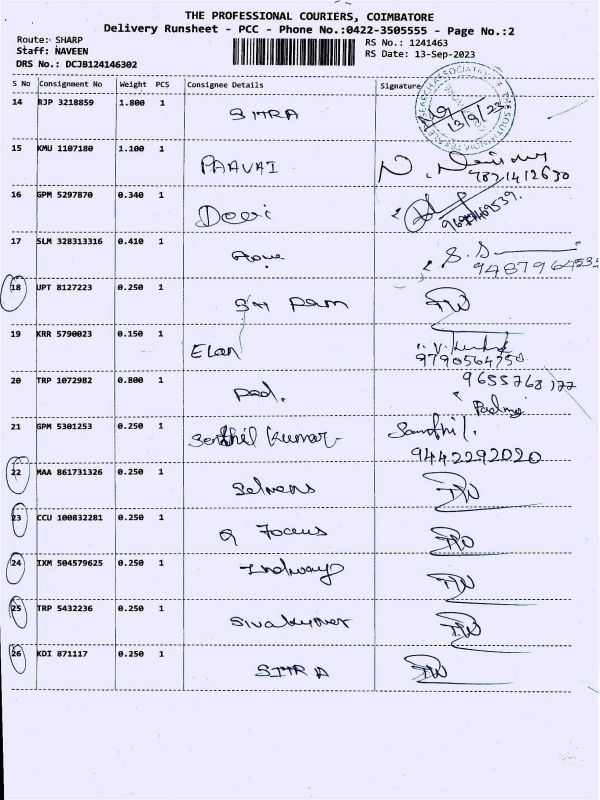 THE PROFESSIONAL COURIERS, COIMBATORE
Delivery Runsheet - PCC - Phone No.:0422-3505555 - Page No.:2
Route: SHARP
Staff: NAVEEN
DRS No.: DCJB124146302
RS No.: 1241463
RS Date: 13-Sep-2023
S No Consignment No Weight PCS Consignee Details Signature
14 RJP 3218859 1.800 1 SITRA 13/9/23
15 KMU 1107180 1.100 1 PAAVAI
16 GPM 5297870 0.340 1 Devi
17 SLM 328313316 0.410 1
18 UPT 8127223 0.250 1 Sri Ram
19 KRR 5790023 0.150 1 Elan
20 TRP 1072982 0.800 1 Pad. Padma
21 GPM 5301253 0.250 1 Senthil Kumar
9442292020
22 MAA 861731326 0.250 1
23 CCU 100832281 0.250 1 Q Focus
24 IXM 504579625 0.250 1
25 TRP 5432236 0.250 1 Sivakumar
26 KDI 871117 0.250 1 SITRA